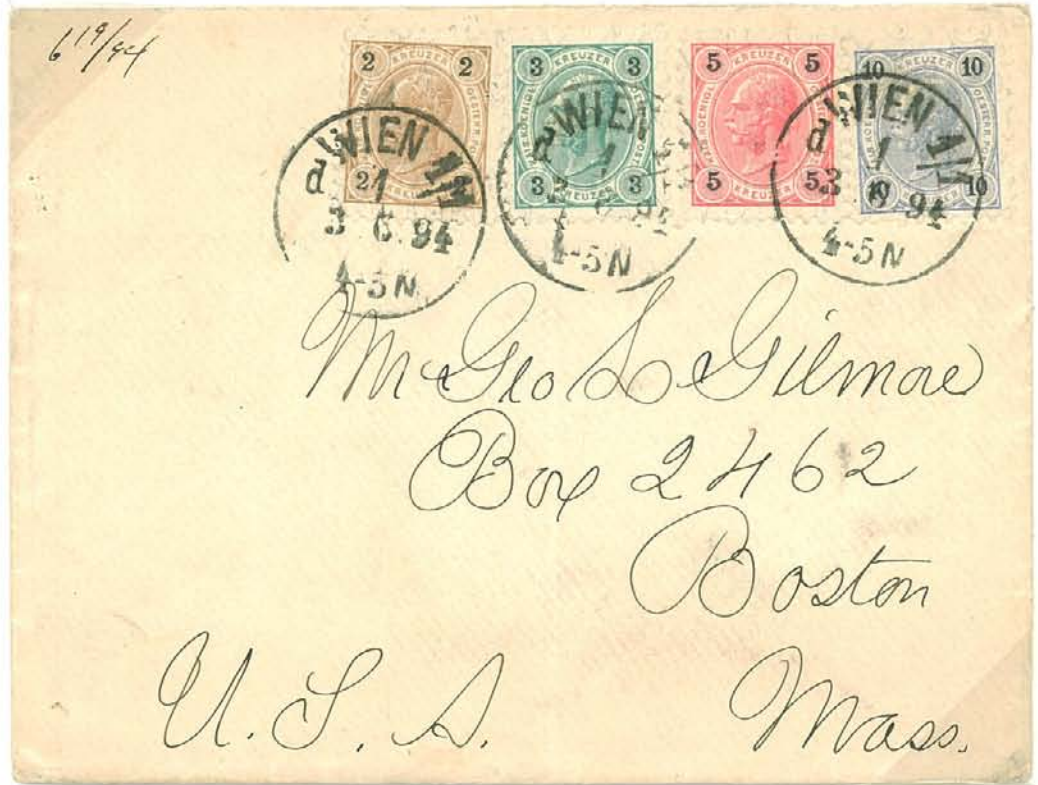 6/19/94
2 KREUZER 2
3 KREUZER 3
5 KREUZER 5
10 KREUZER 10
2 KREUZER 2
3 KREUZER 3
5 KREUZER 5
10 KREUZER 10
WIEN 1/1
d 1
3 6 94
4-5N
WIEN
d 1
3 6 94
4-5N
WIEN 1/1
d 1
3 6 94
4-5N
Mr Geo L Gilmore
Box 2462
Boston
U. S. A. Mass.